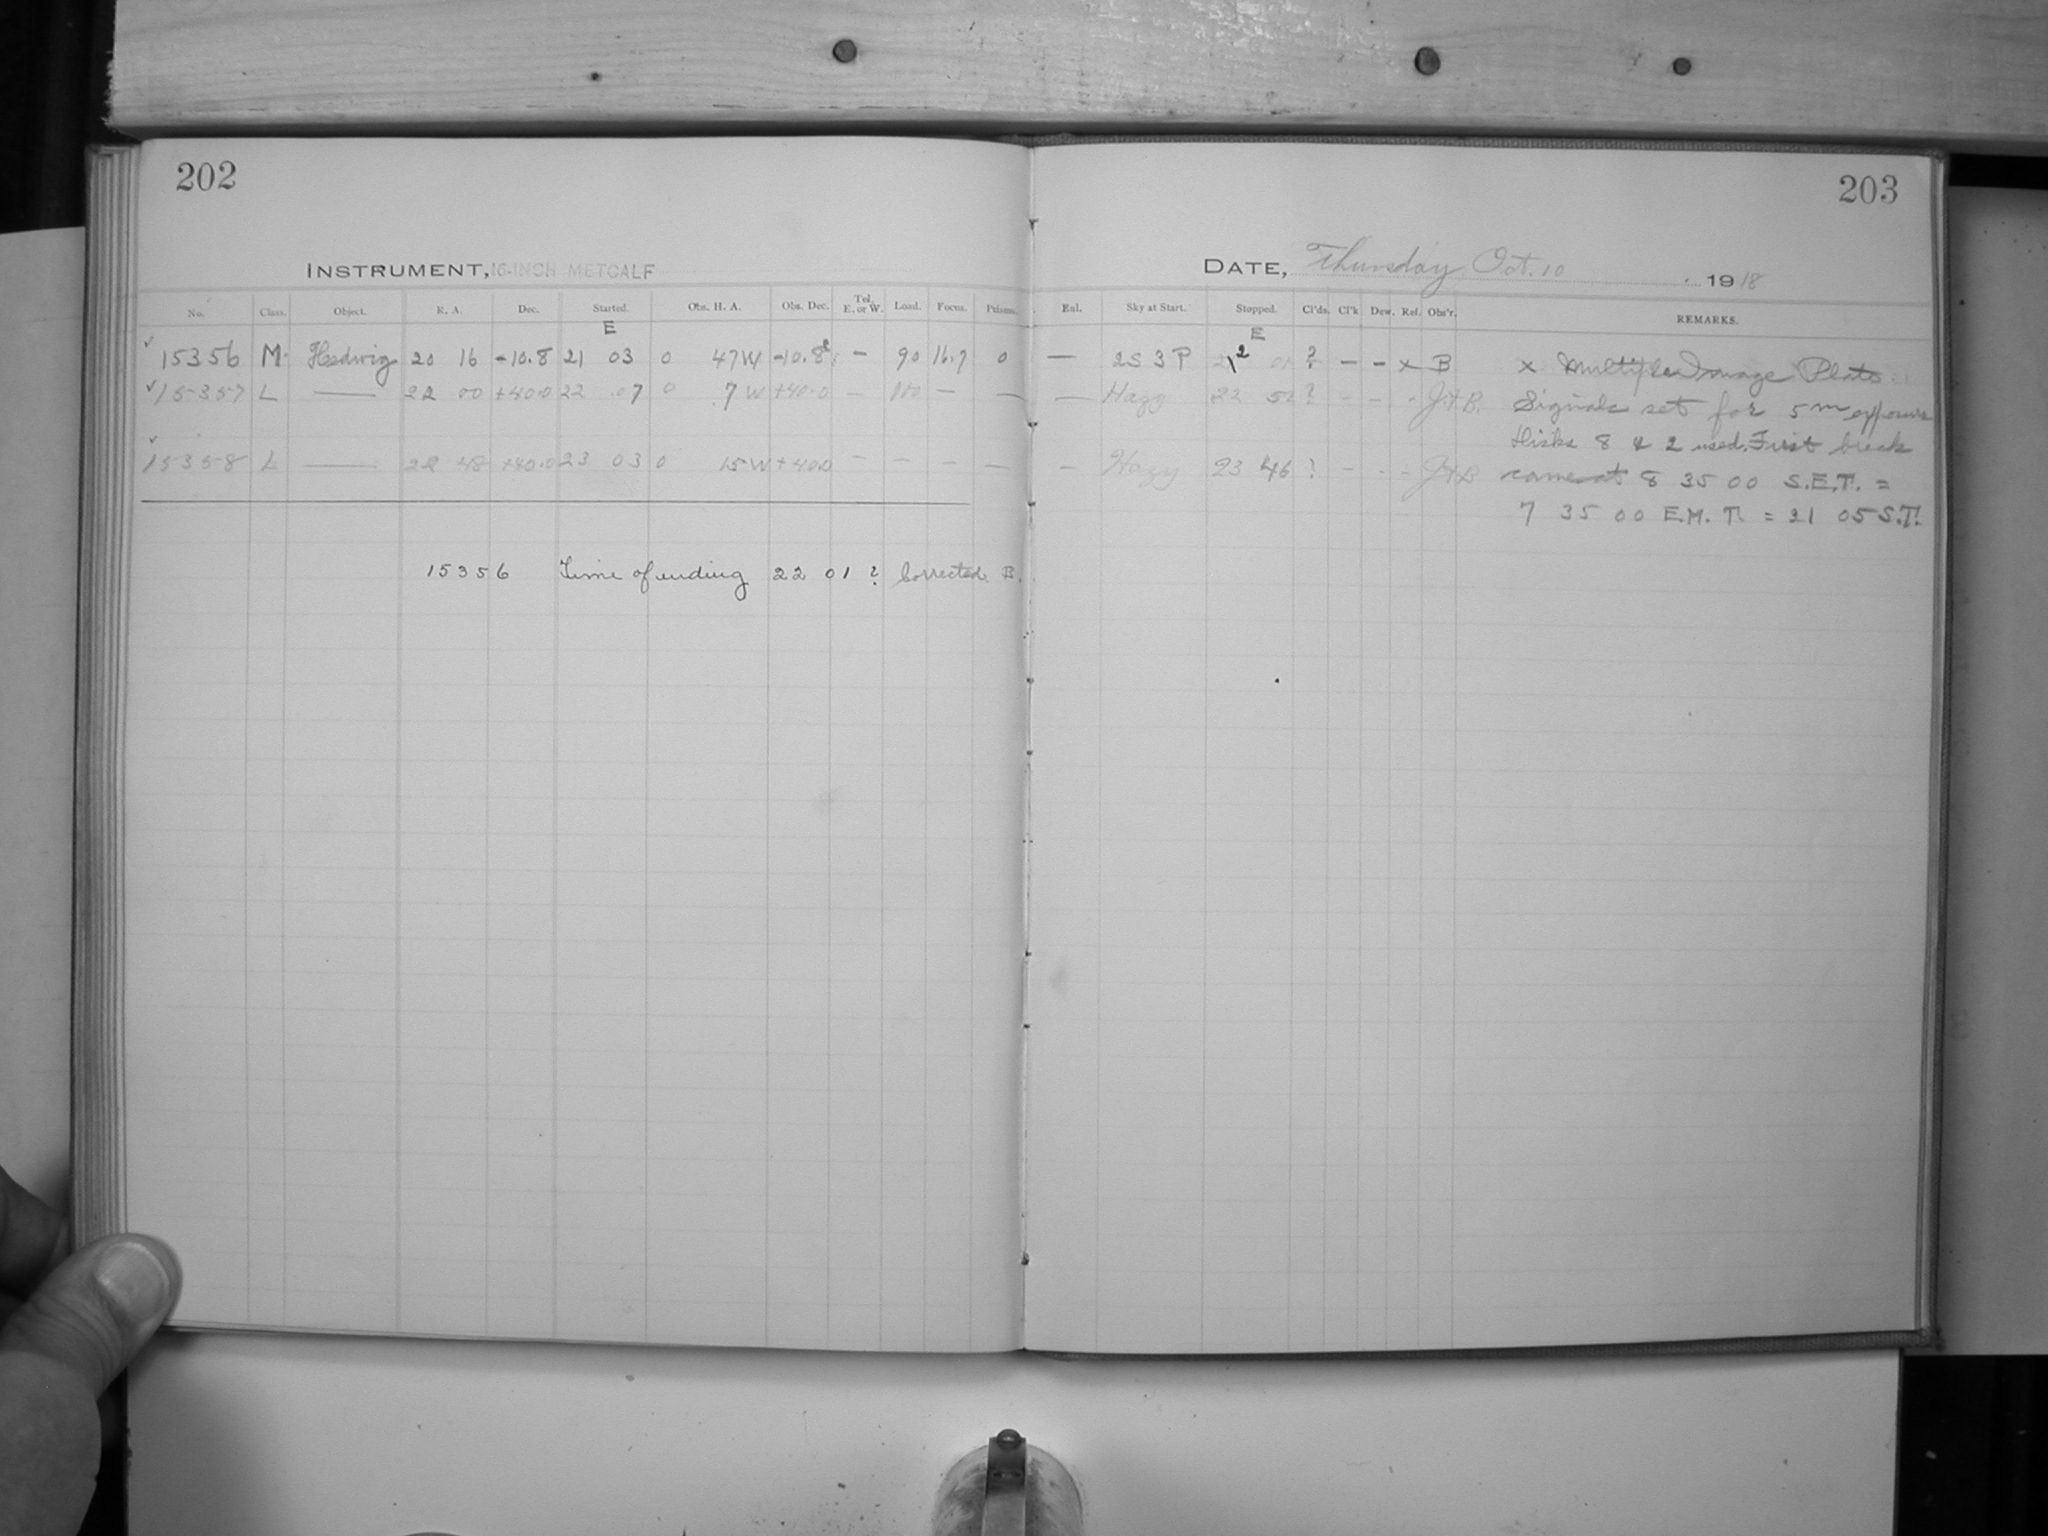 202
203
INSTRUMENT, 16-INCH METCALF
DATE, Thursday Oct. 10 1918
No. Class. Object. R. A. Dec. Started. Obs. H. A. Obs. Dec. Tel. E. or W. Load. Focus. Prisms. Enl. Sky at Start. Stopped. Cl'ds. Cl'k Dew. Ref. Obs'r. REMARKS.
E E
✓ 15356 M Hedwig 20 16 -10.8 21 03 0 47 W -10.8 - 90 16.7 0 — 2S 3 P 2 01 ? - - x B x Multiple Image Plate
✓ 15357 L — 22 00 +40.0 22 07 0 7 W +40.0 — 100 — — — Hazy 22 52 ? - - - J+B. Signals set for 5m exposure
Disks 8 & 2 used. First break
✓ 15358 L — 22 48 +40.0 23 03 0 15 W +40.0 — — — — — Hazy 23 46 ? - - - J+B came at 8 35 00 S.E.T. =
7 35 00 E.M.T. = 21 05 S.T.
15356 Time of ending 22 01 ? Corrected. B.